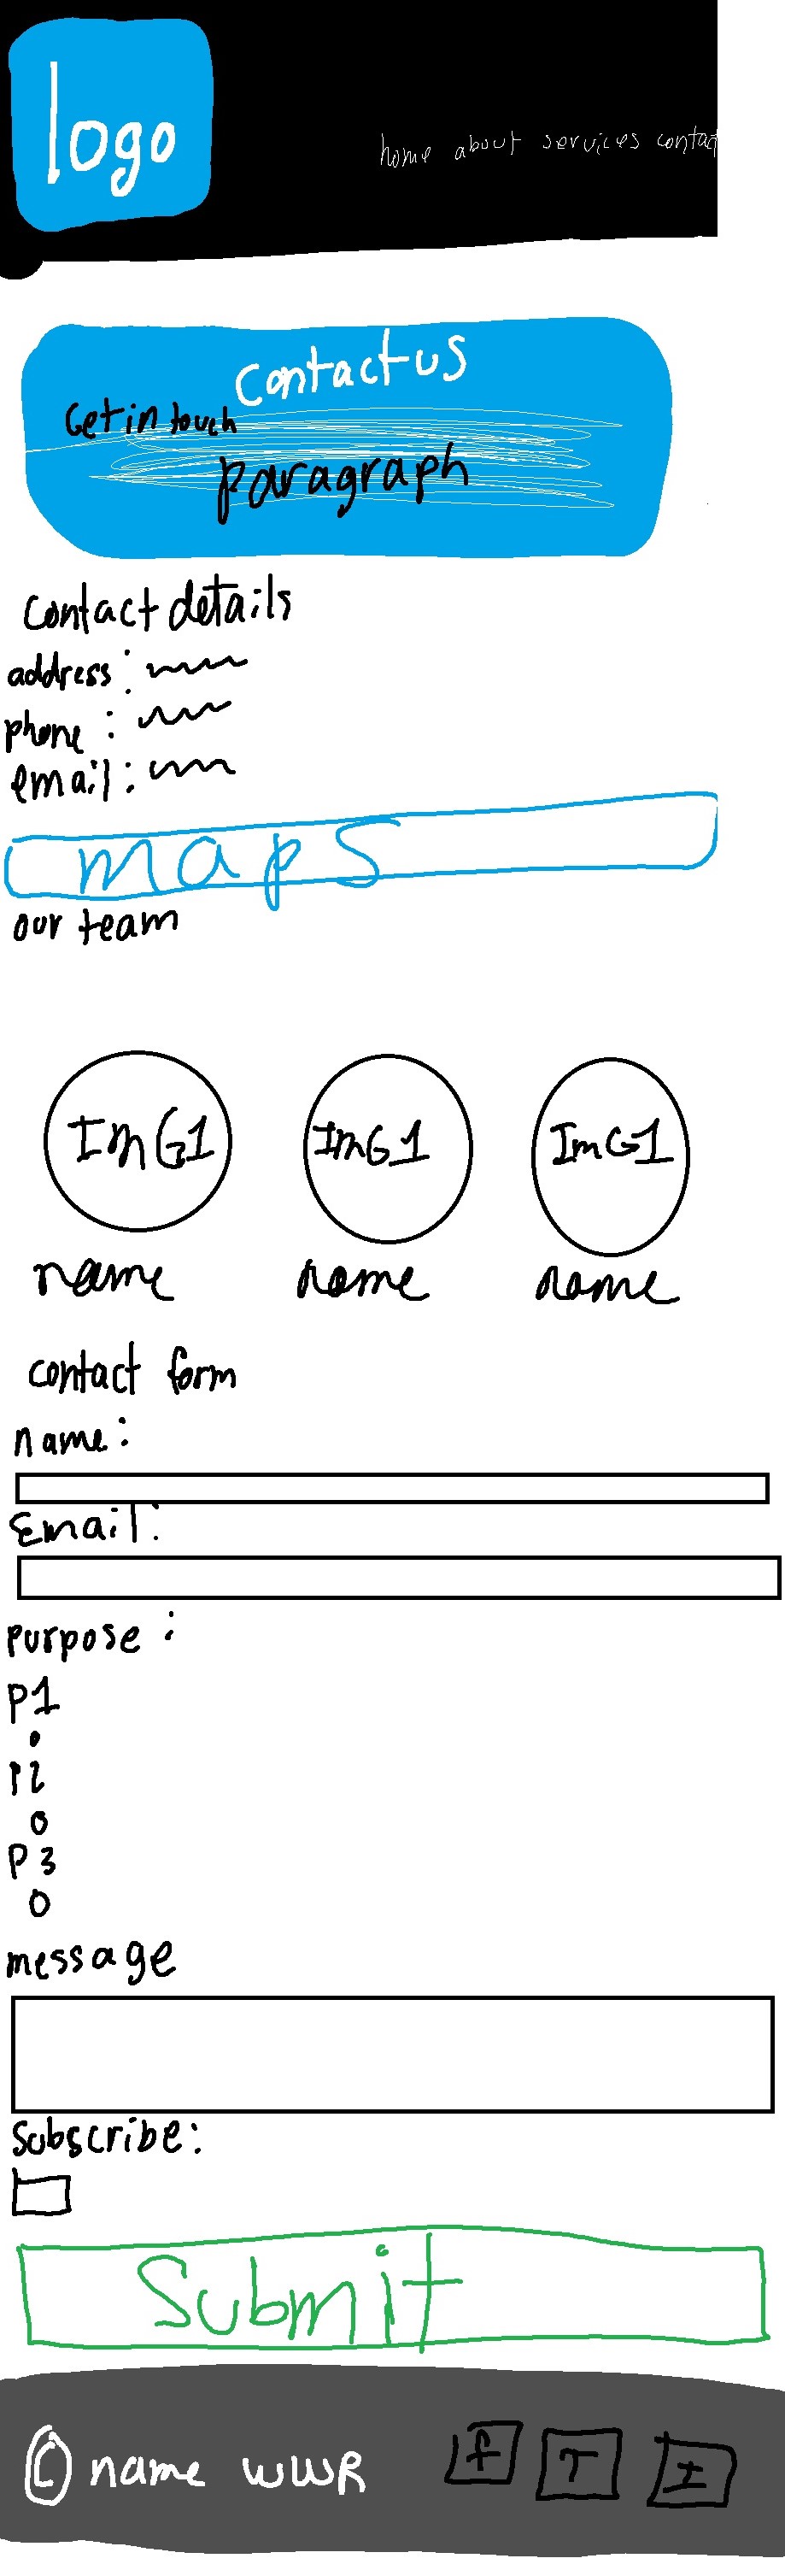 logo
home about services contact
Contact us
Get in touch
paragraph
contact details
address:
phone:
email:
maps
our team
ImG1 ImG1 ImG1
name name name
contact form
name:
Email:
purpose:
P1
P2
P3
message
Subscribe:
Submit
© name WWR f T I